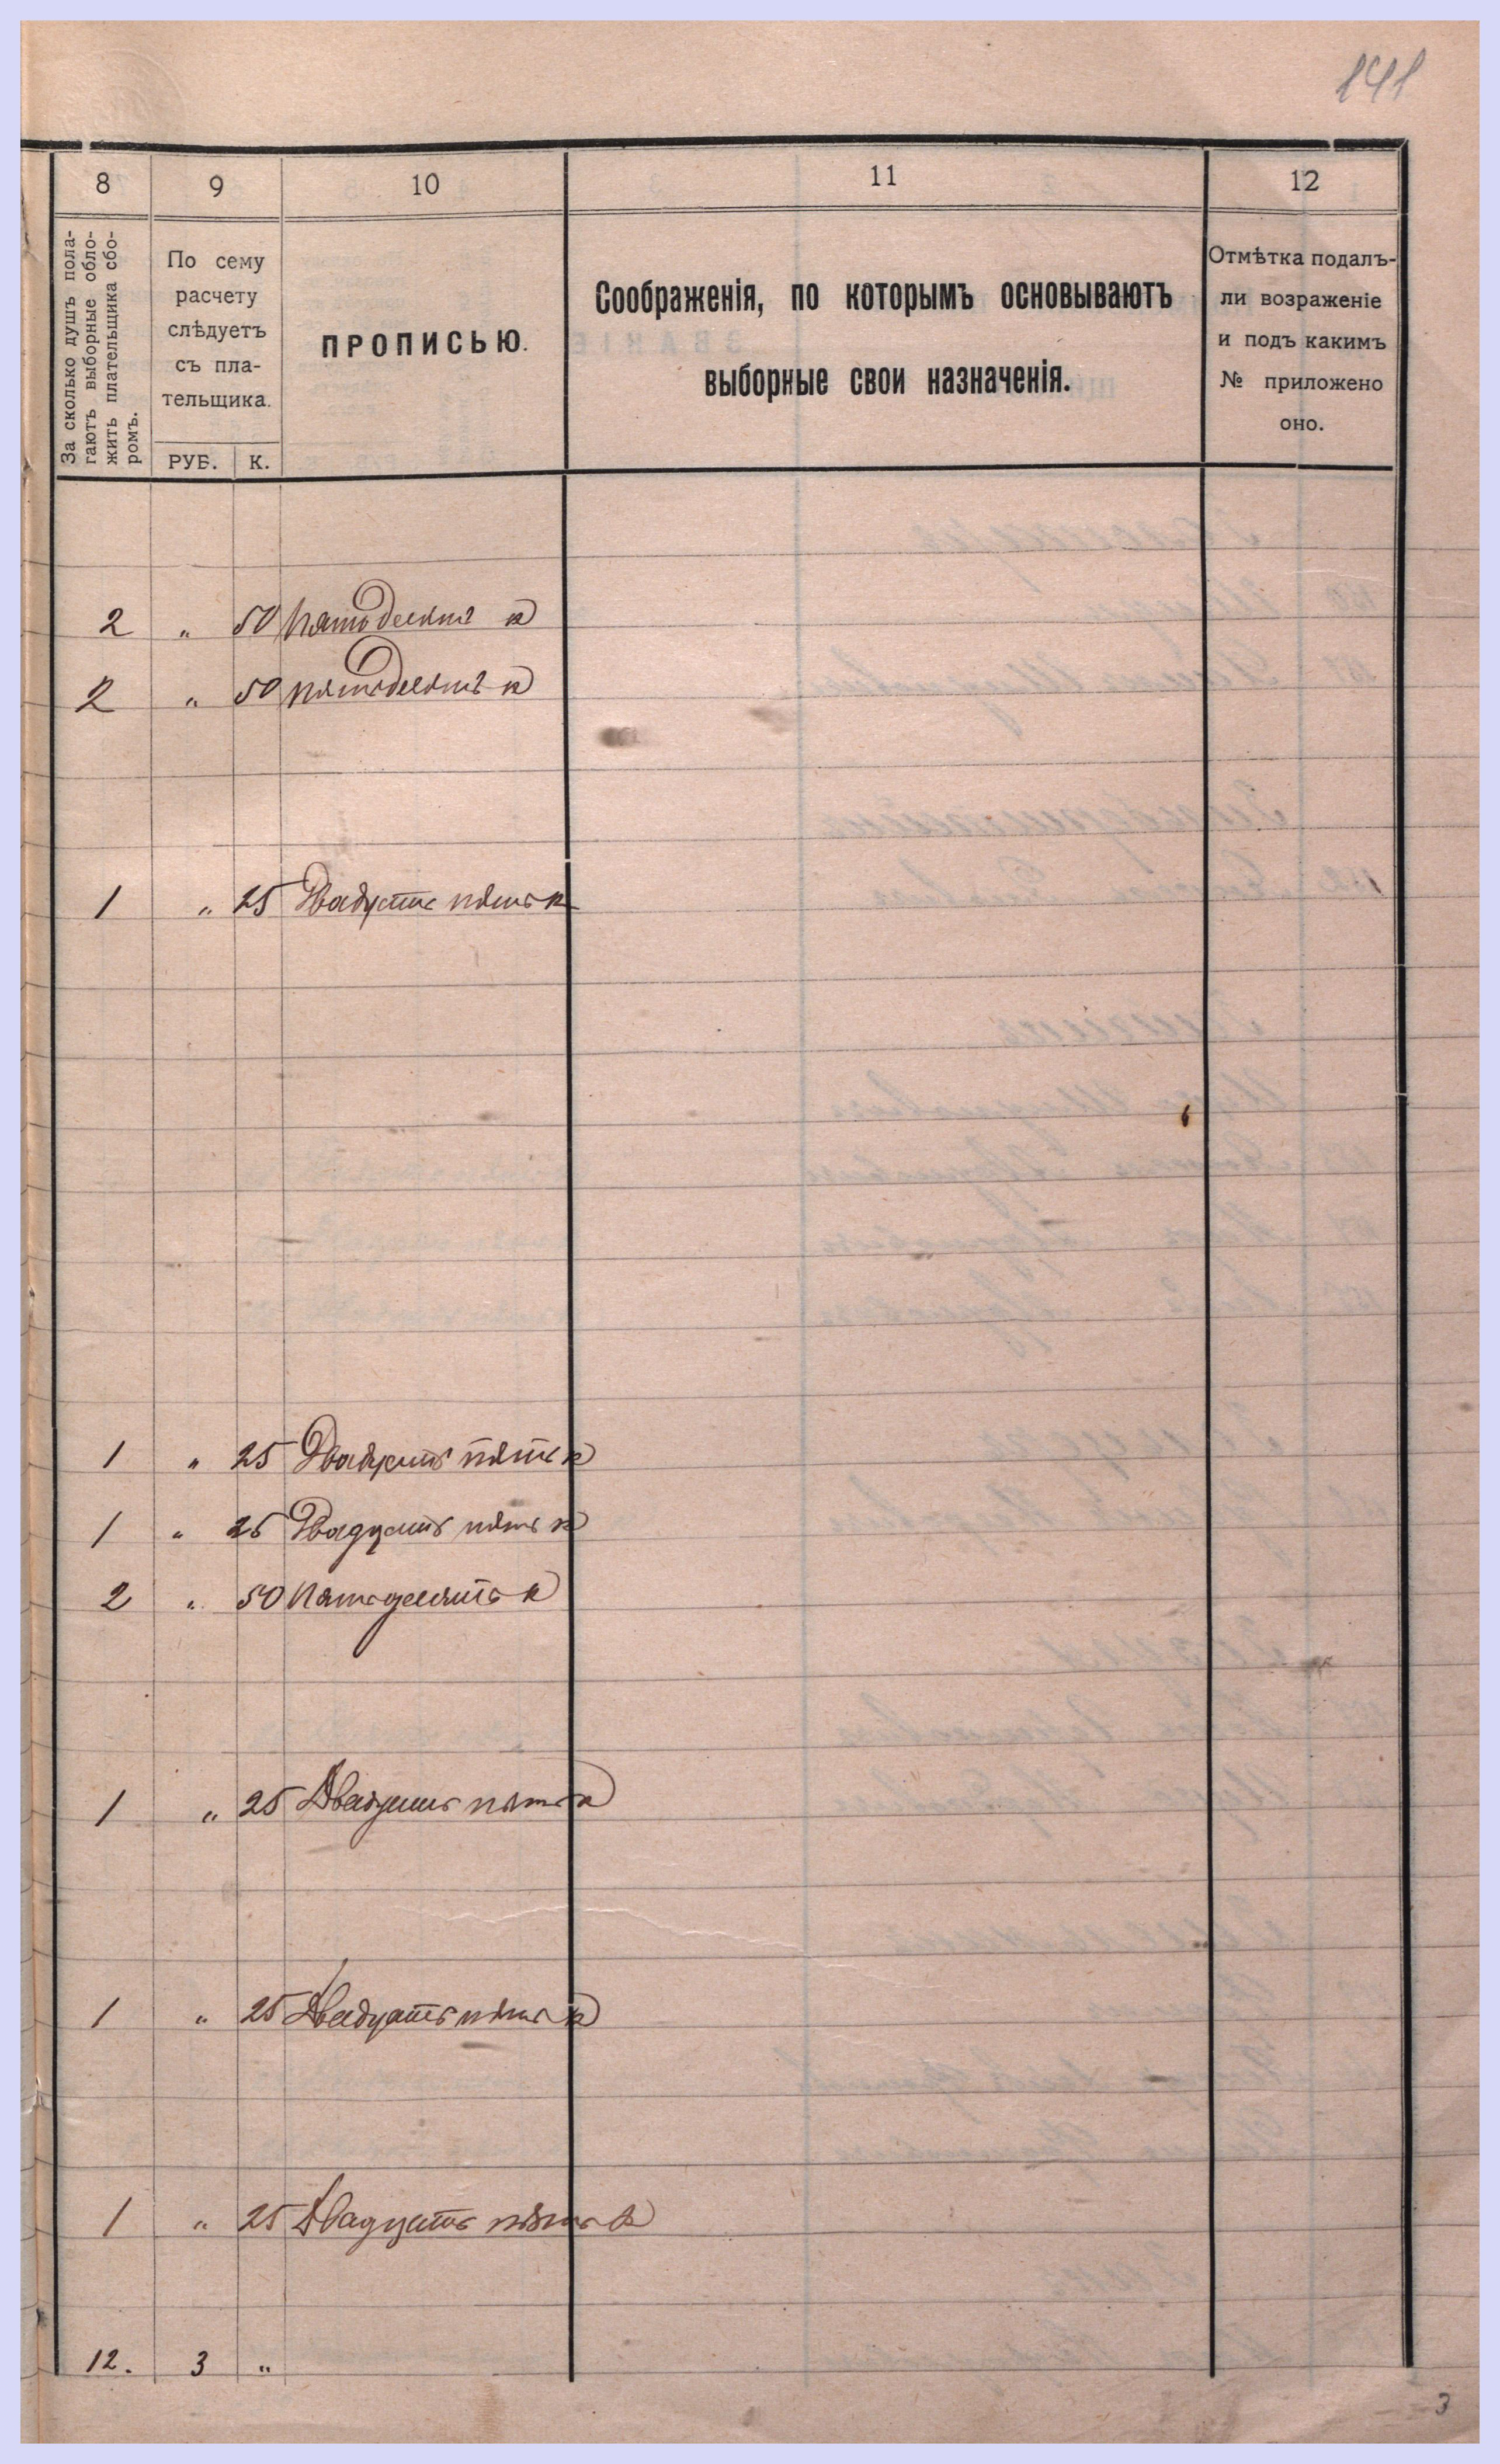 141
8 9 10 11 12
За сколько душъ пола-
гаютъ выборные обло-
жить плательщика сбо-
ромъ.
По сему
расчету
слѣдуетъ
съ пла-
тельщика.
РУБ. К.
ПРОПИСЬЮ.
Соображенія, по которымъ основываютъ
выборные свои назначенія.
Отмѣтка подалъ-
ли возраженіе
и подъ какимъ
№ приложено
оно.
2 „ 50 Пятьдесятъ к
2 „ 50 пятьдесятъ к
1 „ 25 Двадцать пять к
1 „ 25 Двадцать пять к
1 „ 25 Двадцать пять к
2 „ 50 Пятьдесять к
1 „ 25 Двадцать пять к
1 „ 25 Двадцать пять к
1 „ 25 Двадцать пять к
12. 3 „
3